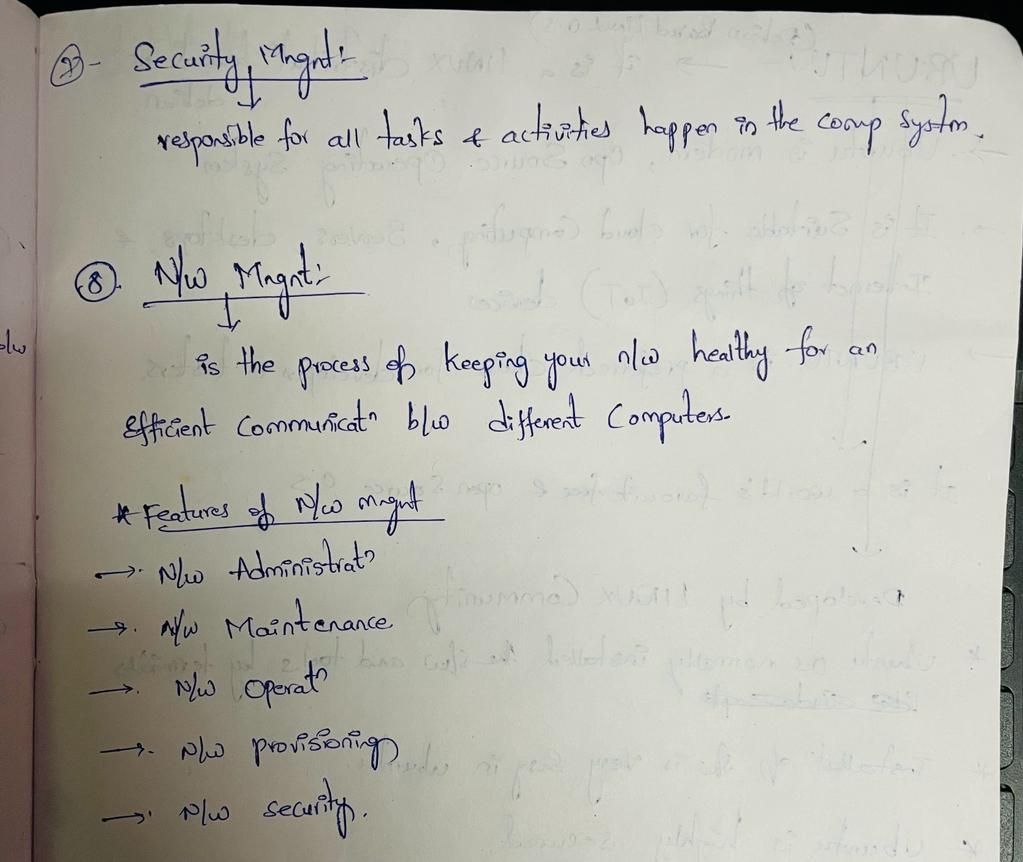 Security Mngnt:-
responsible for all tasks & activities happen in the comp systm.
8. N/w Mngnt:-
is the process of keeping your n/w healthy for an
efficient communicatn b/w different computers.
* Features of N/w mngnt
→ N/w Administratn
→ N/w Maintenance
→ N/w operatn
→ N/w provisioning
→ N/w security.